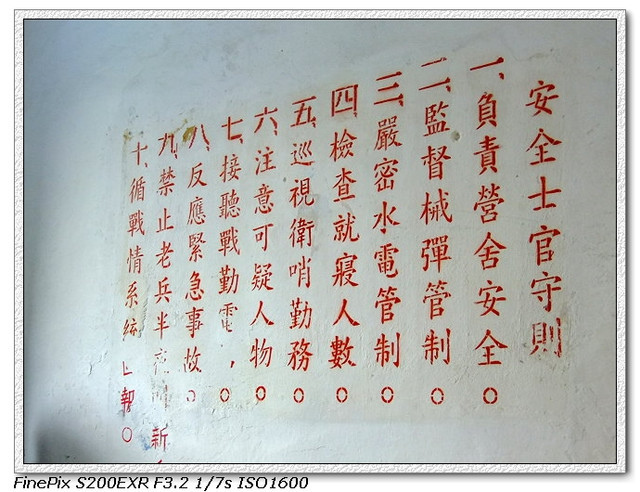 安全士官守則
一、負責營舍安全。
二、監督械彈管制。
三、嚴密水電管制。
四、檢查就寢人數。
五、巡視衛哨勤務。
六、注意可疑人物。
七、接聽戰勤電。
八、反應緊急事故。
九、禁止老兵半新
十、循戰情系統上報。
FinePix S200EXR F3.2 1/7s ISO1600